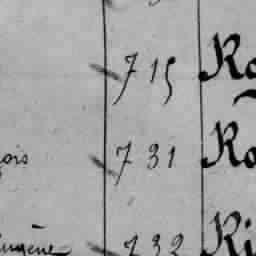 715 Ro
çois 731 Ro
Eugène 732 Ri